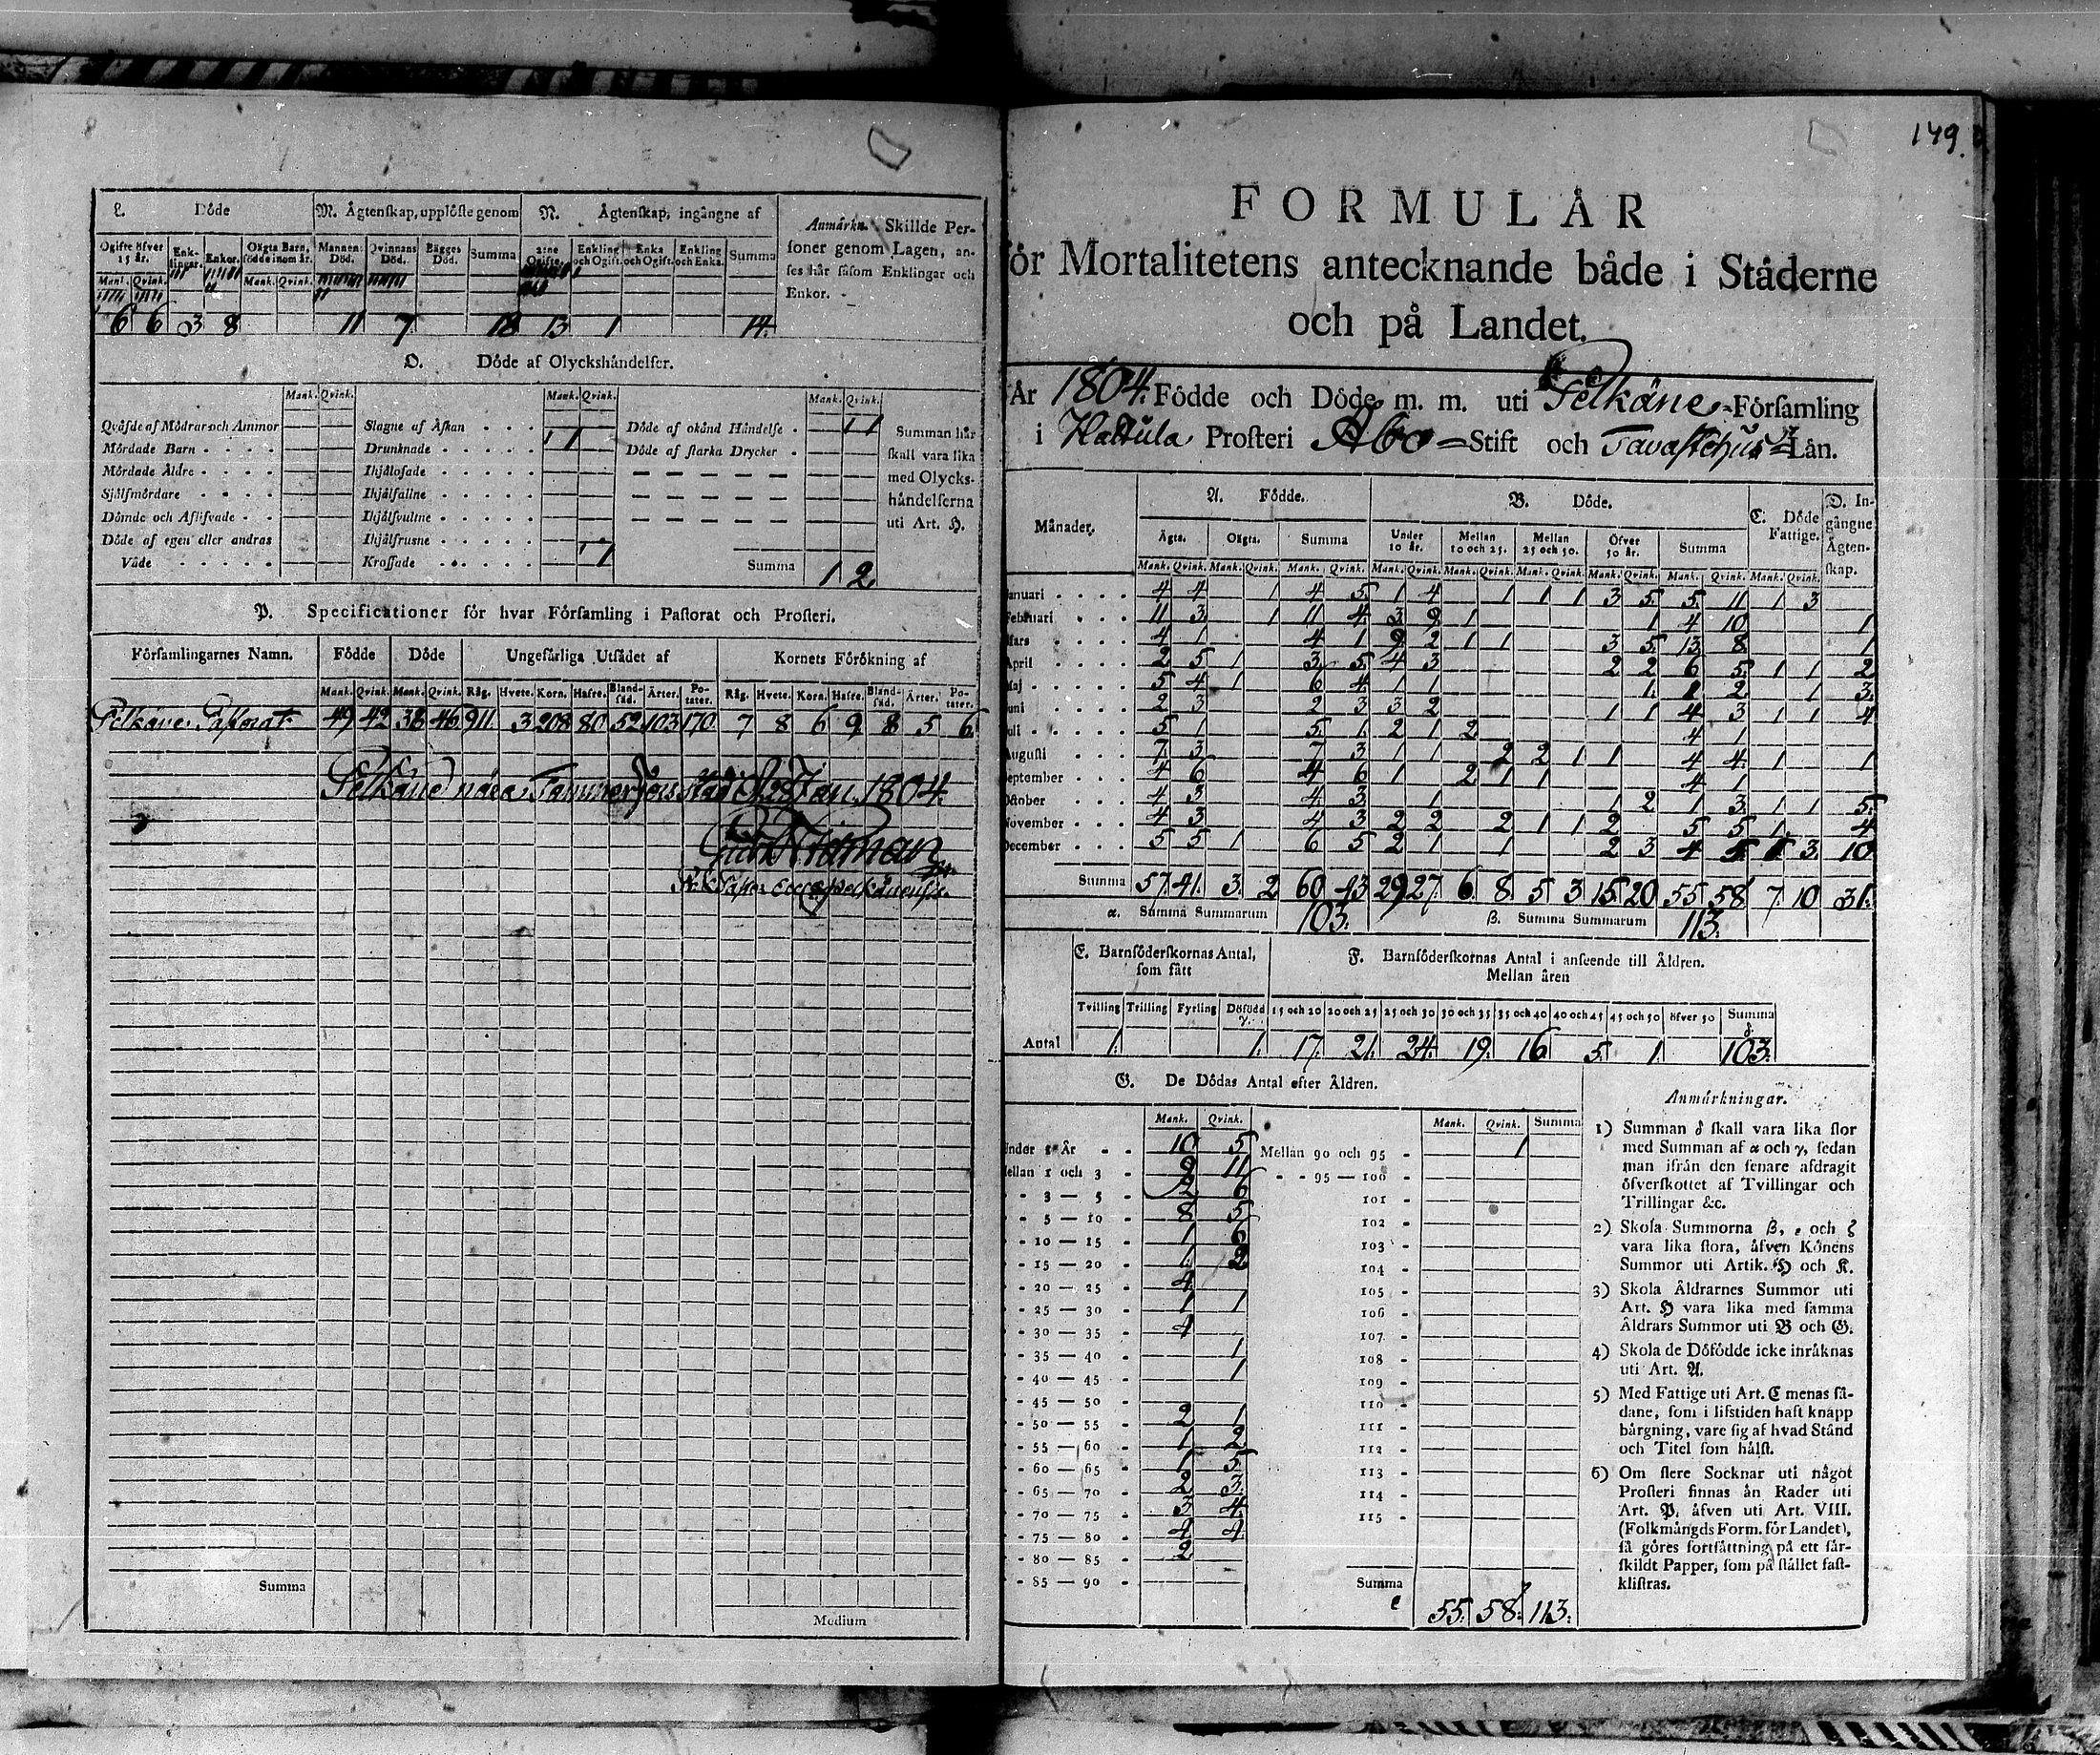 L. Döde
M. Ägtenskap, upplöste genom
N. Ägtenskap, ingångne af
Anmärkn. Skillde Personer genom Lagen, anses här såsom Enklingar och Enkor.
Ogifte öfver 15 år. Enklingar. Enkor. Oägta Barn, födde inom år. Mannens Död. Qvinnans Död. Bägges Död. Summa 2:ne Ogifte. Enkling och Ogift. Enka och Ogift. Enkling och Enka. Summa
Mank. Qvink. Mank. Qvink.
6 6 3 8 11 7 18 13 1 14.
O. Döde af Olyckshändelser.
Mank. Qvink. Mank. Qvink. Mank. Qvink.
Qväfde af Mödrar och Ammor
Mördade Barn
Mördade Äldre
Självmördare
Dömde och Aflifvade
Döde af egen eller andras
Våde
Slagne af Åskan
Drunknade 1
Ihjälosade
Ihjälfallne
Ihjälsvultne
Ihjälfrusne
Krossade 1
Döde af okänd Händelse 1
Döde af starka Drycker
Summa 1 2.
Summan här
skall vara lika
med Olycks-
händelserna
uti Art. H.
P. Specificationer för hvar Församling i Pastorat och Prosteri.
Församlingarnes Namn. Födde Döde Ungefärliga Utsädet af Kornets Förökning af
Mank. Qvink. Mank. Qvink. Råg. Hvete. Korn. Hafre. Blandsäd. Ärter. Potater. Råg. Hvete. Korn. Hafre. Blandsäd. Ärter. Potater.
Pelkäne Pastorat 49 42 38 46 911. 3 208 80 52 103 170. 7 8 6 9 8 5 6.
Pelkäne nära Tammerfors stad d. 28 Jan. 1804.
Summa
Medium
149.
FORMULÄR
för Mortalitetens antecknande både i Städerne
och på Landet.
År 1804. Födde och Döde m. m. uti Pelkäne Församling
i Hattula Prosteri Åbo Stift och Tavastehus Län.
Månader. A. Födde. B. Döde. C. Döde Fattige. D. Ingångne Ägtenskap.
Ägta. Oägta. Summa Under 10 år. Mellan 10 och 25. Mellan 25 och 50. Öfver 50 år. Summa
Mank. Qvink. Mank. Qvink. Mank. Qvink. Mank. Qvink. Mank. Qvink. Mank. Qvink. Mank. Qvink. Mank. Qvink. Mank. Qvink.
Januari 4 4 1 4 5. 1 4 1 1 1 3 5. 5. 11 1 3
Februari 11 3. 1 11 4. 3 9 1 1 4 10 1
Mars 4 1 4 1 9 2 1 1 3 5. 13. 8 1
April 2 5 1 3 5. 4 3 2 2 6 5. 1 1 2
Maj 5 4 1 6 4. 1 1 1. 2 1 3.
Juni 2 3 2 3 3 2 1 1 4 3 1 1 4
Juli 5 1 5. 1. 2 1 2 4 1
Augusti 7 3 7 3 1 1 2 2 1 1 4 4. 1 1
September 4 6 4 6 1 2 1 1 4 1
October 4 3 4. 3 1 1 2 1 3. 1 1 5.
November 4 3 4 3 2 2 2 1 1 2 5 5 1 4
December 5 5 1 6 5 2 1 1 2 3 4 3. 10
Summa 57 41. 3. 2 60 43 29 27. 6 8 5 3 15 20 55 58 7 10 31.
α. Summa Summarum 103. β. Summa Summarum 113.
E. Barnföderskornas Antal, som fått
F. Barnföderskornas Antal i anseende till Åldren.
Mellan åren
Tvilling Trilling Fyrling Döfödd γ. 15 och 20 20 och 25 25 och 30 30 och 35 35 och 40 40 och 45 45 och 50 öfver 50 Summa δ
Antal 1. 1. 17. 21. 24. 19. 16 5. 1. 103.
G. De Dödas Antal efter Åldren.
Mank. Qvink. Mank. Qvink. Summa
Under 1 År 10 5 Mellan 90 och 95 1
Mellan 1 och 3 9 11 95 — 100
3 — 5 2 6 101
5 — 10 8 5 102
10 — 15 1 6 103
15 — 20 1. 2 104
20 — 25 4. 105
25 — 30 1 1 106
30 — 35 4 107
35 — 40 1 108
40 — 45 1 109
45 — 50 110
50 — 55 2 1 111
55 — 60 1 2 112
60 — 65 1 5 113
65 — 70 2 3. 114
70 — 75 3 4. 115
75 — 80 4 4
80 — 85 2
85 — 90
Summa 55. 58. 113.
Anmärkningar.
1) Summan δ skall vara lika stor
med Summan af α och γ, sedan
man ifrån den senare afdragit
öfverskottet af Tvillingar och
Trillingar &c.
2) Skola Summorna β, ε och ζ
vara lika stora, äfven Könens
Summor uti Artik. H och K.
3) Skola Åldrarnes Summor uti
Art. H vara lika med samma
Åldrars Summor uti B och G.
4) Skola de Döfödde icke inräknas
uti Art. A.
5) Med Fattige uti Art. C menas så-
dane, som i lifstiden haft knapp
bärgning, vare sig af hvad Stånd
och Titel som hälst.
6) Om flere Socknar uti något
Prosteri finnas än Rader uti
Art. P. äfven uti Art. VIII.
(Folkmängds Form. för Landet),
så göres fortsättning på ett sär-
skildt Papper, som på stället fast-
klistras.